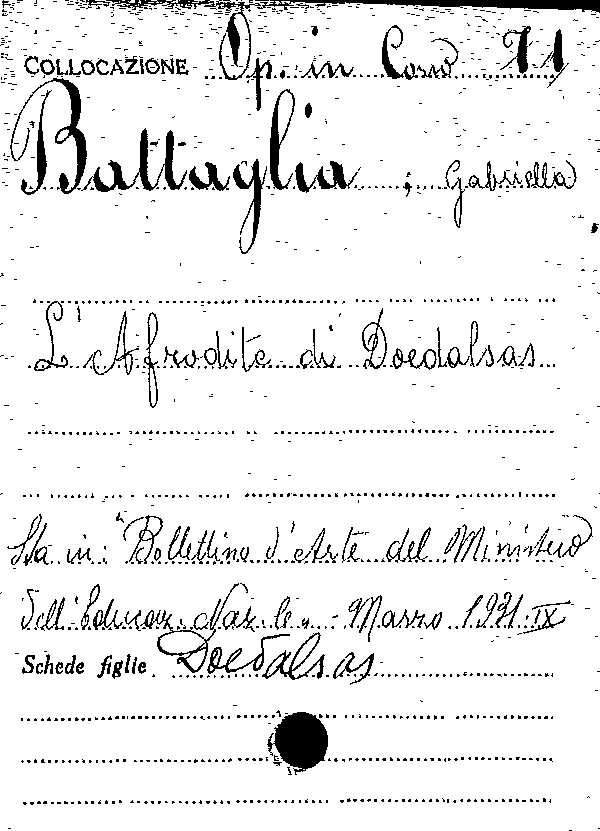 COLLOCAZIONE Op. in Corso 71
Battaglia ; Gabriella
L'Afrodite di Doedalsas
Sta in: "Bollettino d'Arte del Ministero
dell'Educaz. Naz.le„ - Marzo 1931. IX
Schede figlie Doedalsas